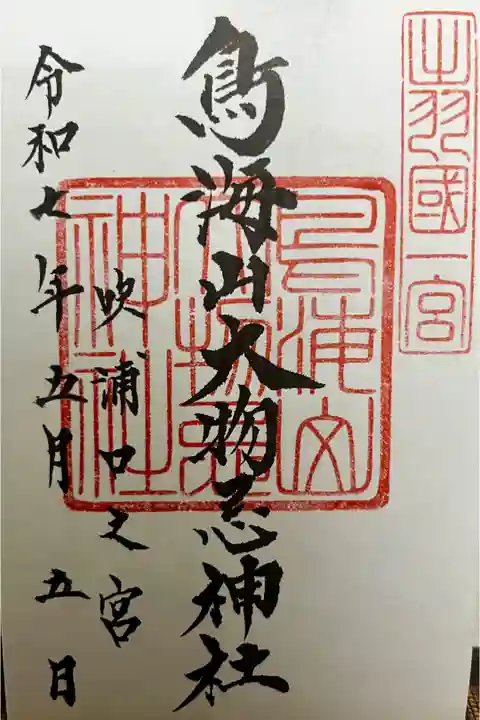 出羽國一宮
鳥海山大物忌神社
鳥海山大物忌神社
吹浦口之宮
令和七年五月五日